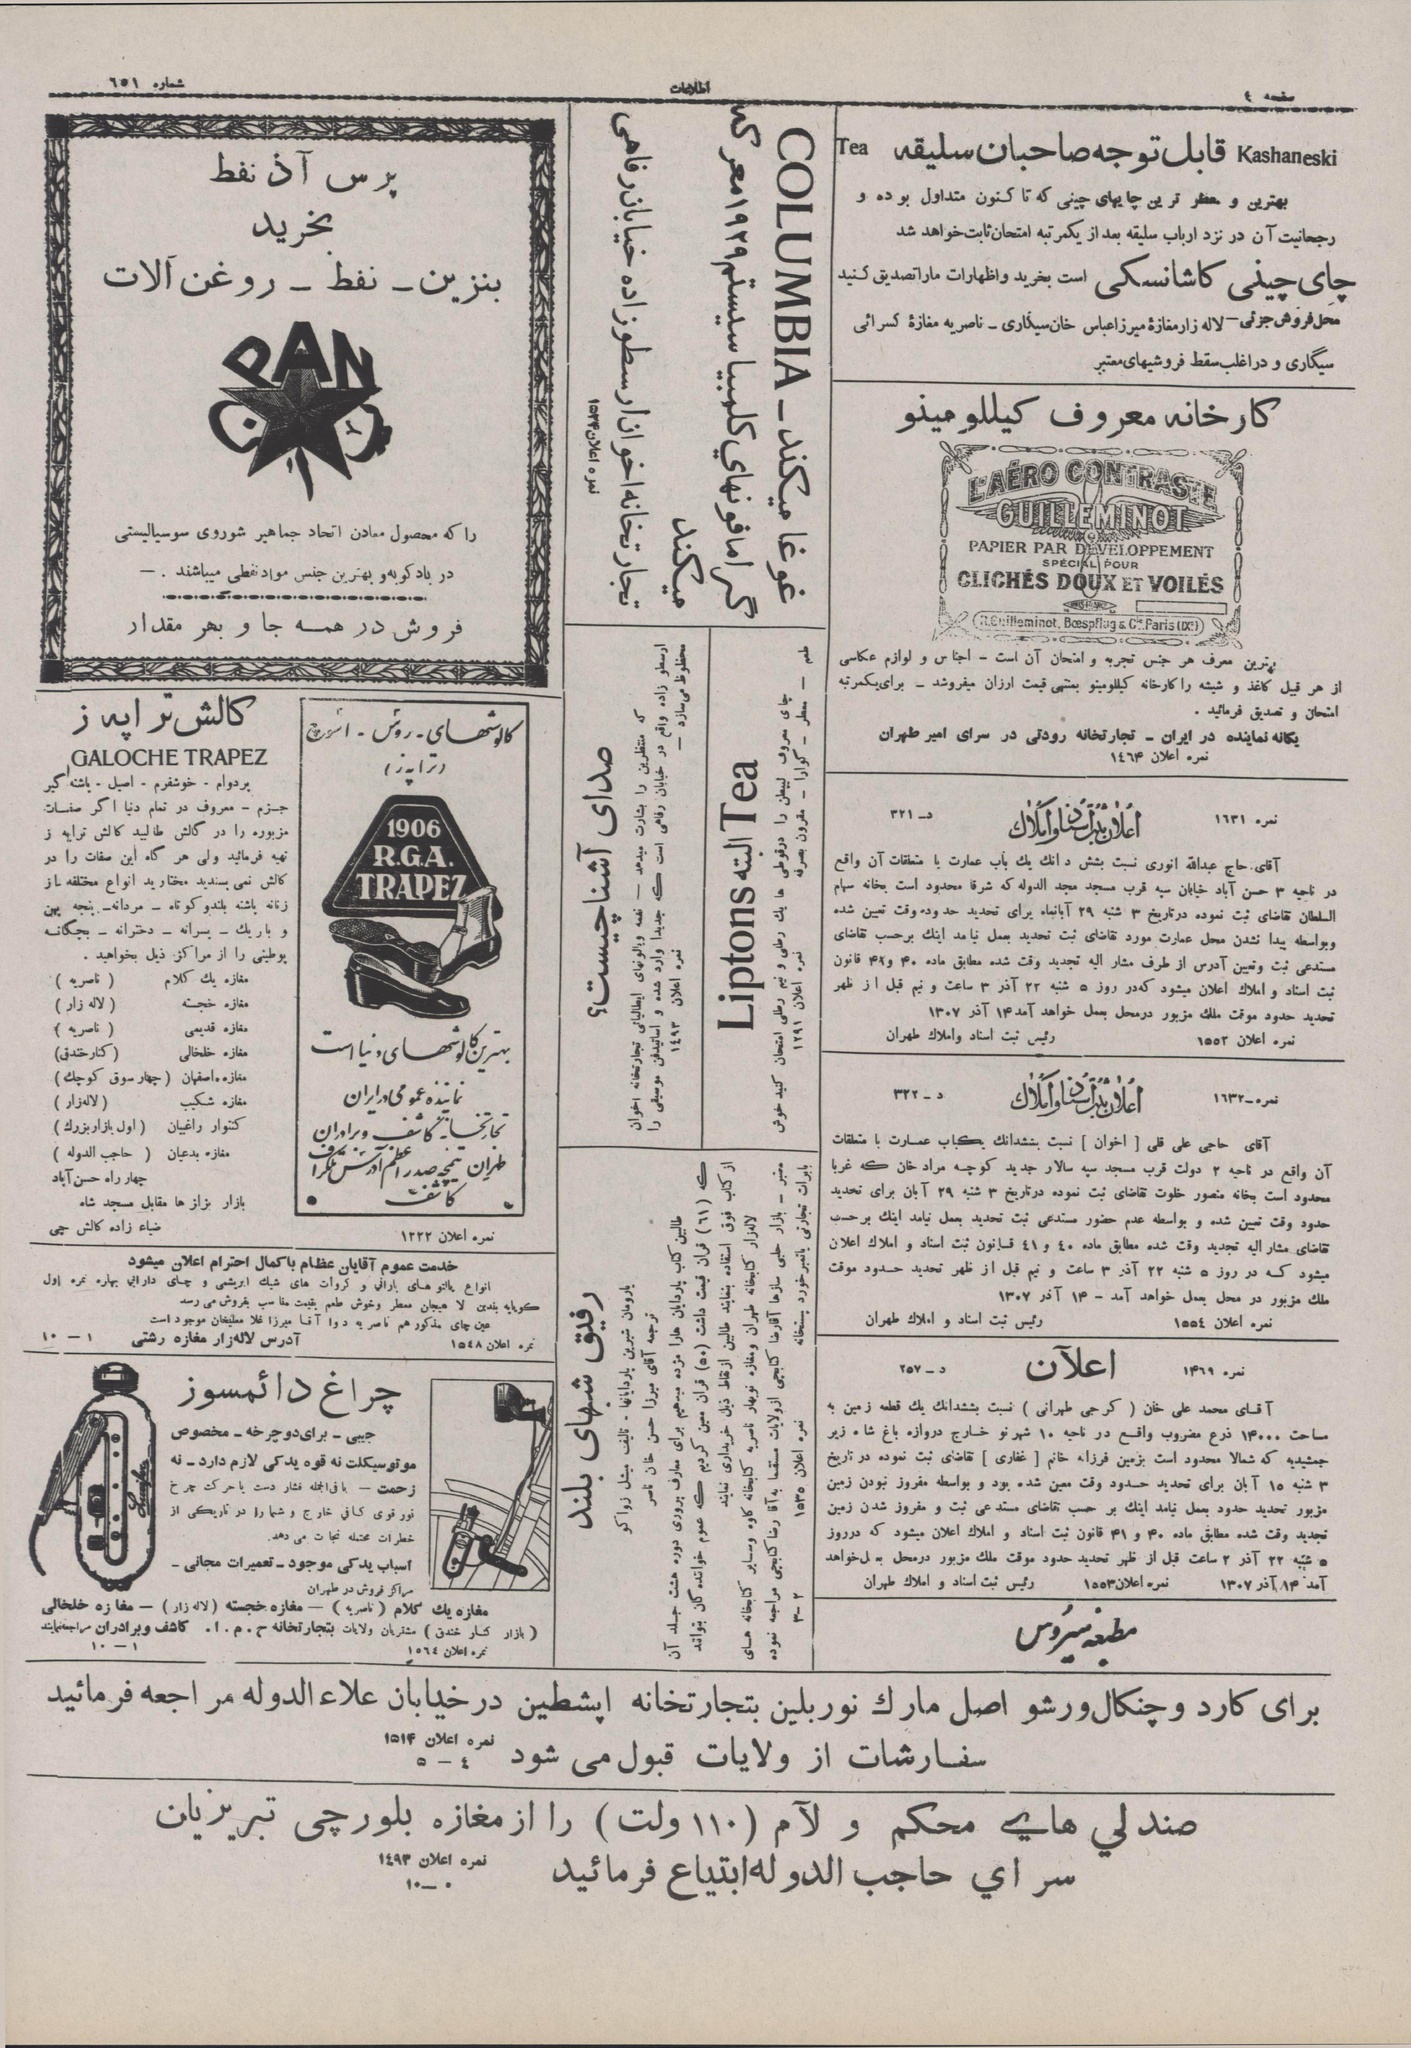 صفحه ٤
اطلاعات
شماره ٦٥١
Kashaneski قابل توجه صاحبان سلیقه Tea
بهترین و معطر ترین چایهای چینی که تا کنون متداول بوده و
رجحانیت آن در نزد ارباب سلیقه بعد از یکمرتبه امتحان ثابت خواهد شد
چای چینی کاشانسکی است بخرید و اظهارات ما را تصدیق کنید
محل فروش جزئی – لاله زار مغازهٔ میرزا عباس خان سیگاری – ناصریه مغازهٔ کسرائی
سیگاری و در اغلب سقط فروشیهای معتبر
کارخانه معروف کیللومینو
L'AÉRO CONTRASTE
GUILLEMINOT
PAPIER PAR DÉVELOPPEMENT
SPÉCIAL POUR
CLICHÉS DOUX ET VOILÉS
R. Guilleminot, Bœspflug & Cie Paris (IXe)
بهترین معرف هر جنس تجربه و امتحان آن است – اجناس و لوازم عکاسی
از هر قبیل کاغذ و شیشه را کارخانه کیللومینو بمنتهی قیمت ارزان میفروشد – برای یکمرتبه
امتحان و تصدیق فرمائید .
یگانه نماینده در ایران – تجارتخانه رودتی در سرای امیر طهران
نمره اعلان ۱۴۶۴
نمره ۱۶۳۱ اعلان ثبت اسناد و املاک د – ۳۲۱
آقای حاج عبدالله انوری نسبت بشش دانك يك باب عمارت با متعلقات آن واقع
در ناحیه ۳ حسن آباد خیابان سپه قرب مسجد مجد الدوله که شرقا محدود است بخانه سهام
السلطان تقاضای ثبت نموده در تاریخ ۳ شنبه ۲۹ آبانماه برای تحدید حدود وقت تعیین شده
و بواسطه پیدا نشدن محل عمارت مورد تقاضای ثبت تحدید بعمل نیامد اینك بر حسب تقاضای
مستدعی ثبت و تعیین آدرس از طرف مشار الیه تجدید وقت شده مطابق ماده ۴۰ و ۴۸ قانون
ثبت اسناد و املاك اعلان میشود که در روز ۵ شنبه ۲۲ آذر ۳ ساعت و نیم قبل از ظهر
تحدید حدود موقت ملك مزبور در محل بعمل خواهد آمد ۱۴ آذر ۱۳۰۷
نمره اعلان ۱۵۵۲ رئیس ثبت اسناد و املاك طهران
نمره – ۱۶۳۲ اعلان ثبت اسناد و املاک د – ۳۲۲
آقای حاجی علی قلی [ اخوان ] نسبت بششدانك یکباب عمارت با متعلقات
آن واقع در ناحیه ۲ دولت قرب مسجد سپه سالار جدید کوچه مراد خان که غربا
محدود است بخانه منصور خلوت تقاضای ثبت نموده در تاریخ ۳ شنبه ۲۹ آبان برای تحدید
حدود وقت تعیین شده و بواسطه عدم حضور مستدعی ثبت تحدید بعمل نیامد اینك بر حسب
تقاضای مشار الیه تجدید وقت شده مطابق ماده ۴۰ و ۴۱ قانون ثبت اسناد و املاك اعلان
میشود که در روز ۵ شنبه ۲۲ آذر ۳ ساعت و نیم قبل از ظهر تحدید حدود موقت
ملك مزبور در محل بعمل خواهد آمد – ۱۴ آذر ۱۳۰۷
نمره اعلان ۱۵۵۴ رئیس ثبت اسناد و املاك طهران
نمره ۱۴۶۹ اعلان د – ۲۵۷
آقای محمد علی خان ( کرجی طهرانی ) نسبت بششدانك يك قطعه زمین به
مساحت ۱۴۰۰۰ ذرع مضروب واقع در ناحیه ۱۰ شهر نو خارج دروازه باغ شاه زیر
جمشیدیه که شمالا محدود است بزمین فرزانه خانم [ غفاری ] تقاضای ثبت نموده در تاریخ
۳ شنبه ۱۵ آبان برای تحدید حدود وقت معین شده بود و بواسطه مفروز نبودن زمین
مزبور تحدید حدود بعمل نیامد اینك بر حسب تقاضای مستدعی ثبت و مفروز شدن زمین
تجدید وقت شده مطابق ماده ۴۰ و ۴۱ قانون ثبت اسناد و املاك اعلان میشود که در روز
۵ شنبه ۲۲ آذر ۲ ساعت قبل از ظهر تحدید حدود موقت ملك مزبور در محل بعمل خواهد
آمد ۱۴ آذر ۱۳۰۷ نمره اعلان ۱۵۵۳ رئیس ثبت اسناد و املاك طهران
مطبعه سیروس
COLUMBIA – غوغا میکند
گرامافونهای کلمبیا سیستم ۱۹۲۹ معرکه
میکند
تجارتخانه اخوان ارسطو زاده خیابان رفاهی
نمره اعلان ۱۵۴۴
Liptons Tea البته
چای معروف لیپطن را در قوطی ها يك رطلی و نیم رطلی امتحان کنید خوش
طعم – معطر – گوارا – مقرون بصرفه نمره اعلان ۱۲۹۱
صدای آشنا چیست؟
که منتظرین را بشارت میدهد – نغمه ویالونهای ایطالیائی تجارتخانه اخوان
ارسطو زاده واقع در خیابان رفاهی است که جدیدا وارد شده و اساتید فن موسیقی را
محظوظ می‌سازد – نمره اعلان ۱۴۹۳
رفیق شبهای بلند
پارومان شیرین پاردایانها – تالیف میشل زواکو
ترجمه آقای میرزا حسن خان ناصر
طالبین کتاب پاردایان هارا مژده میدهیم برای معارف پروری دوره هشت جلد آن
که (٦١) قران قیمت داشت (٥٠) قران معین کردیم که عموم خوانندگان بتوانند
از کتاب فوق استفاده بنمایند طالبین از نقاط ذیل خریداری نمایند
لاله‌زار کتابخانه طهران و مغازه نوبهار ناصریه کتابخانه کاوه و سایر کتابخانه های
معتبر – بازار حلبی سازها آقا رضا کتابچی از ولایات مستقما به آقا رضا کتابچی مراجعه نموده
بابرات تجارتی یا تمبر خورد بستخانه نمره اعلان ۱۵۳۵ ۲ – ۳
پرس آذ نفط
بخرید
بنزین – نفط – روغن آلات
را که محصول معادن اتحاد جماهیر شوروی سوسیالیستی
در بادکوبه و بهترین جنس مواد نفطی میباشند . –
فروش در همه جا و بهر مقدار
کالش تراپه ز
GALOCHE TRAPEZ
پردوام – خوشفرم – اصیل – پاشنه گیر
جزم – معروف در تمام دنیا اگر صفات
مزبوره را در گالش طالبید کالش تراپه ز
تهیه فرمائید ولی هر گاه این صفات را در
کالش نمی پسندید مختارید انواع مختلفه از
زنانه پاشنه بلند و کوتاه – مردانه – پنجه پهن
و باریك – پسرانه – دخترانه – بچگانه
پوطینی را از مراکز ذیل بخواهید .
مغازه يك کلام ( ناصریه )
مغازه خجسته ( لاله زار )
مغازه قدیمی ( ناصریه )
مغازه خلخالی (کنار خندق)
مغازه اصفهان (چهار سوق کوچك)
مغازه شکیب (لاله‌زار)
کنتوار راغبیان (اول بازار بزرك)
مغازه بدعیان ( حاجب الدوله )
چهار راه حسن آباد
بازار بزازها مقابل مسجد شاه
ضیاء زاده کالش چی
کالوشهای – روش – اشوچ
(تراپه ز)
1906
R.G.A.
TRAPEZ
بهترین کالوشهای دنیا است
نماینده عمومی در ایران
تجارتخانه کاشف و برادران
طهران تیمچه صدر اعظم آدرس تلگرافی
کاشف
نمره اعلان ۱۲۲۲
خدمت عموم آقایان عظام با کمال احترام اعلان میشود
انواع پالتو های بارانی و کروات های شیك ابریشمی و چای دارائی بهاره نمره اول
کوپایه بلدین لاهیجان معطر و خوش طعم بقیمت مناسب بفروش می رسد
عین چای مذکور هم ناصریه دوا آقا میرزا غلامعلیخان موجود است
نمره اعلان ۱۵۴۸ آدرس لاله‌زار مغازه رشتی ۱ – ۱۰
چراغ دائمسوز
جیبی – برای دوچرخه – مخصوص
موتوسیکلت نه قوه یدکی لازم دارد – نه
زحمت – بافی الجمله فشار دست یا حرکت چرخ
نور قوی کافی خارج و شما را در تاریکی از
خطرات محتمله نجات می دهد.
اسباب یدکی موجود – تعمیرات مجانی –
مراکز فروش در طهران
مغازه يك کلام (ناصریه) – مغازه خجسته (لاله زار) – مغازه خلخالی
( بازار کنار خندق ) مشتریان ولایات بتجارتخانه ح . م . ا . کاشف و برادران مراجعه نمایند
نمره اعلان ۱۵٦٤ ۱ – ۱۰
برای کارد و چنکال ورشو اصل مارك نوربلین بتجارتخانه اپشطین در خیابان علاء الدوله مراجعه فرمائید
سفارشات از ولایات قبول می شود نمره اعلان ۱۵۱۴
٤ – ٥
صندلي هاي محکم و لآم (۱۱۰ ولت) را از مغازه بلورچی تبریزیان
سراي حاجب الدوله ابتیاع فرمائید نمره اعلان ۱۴۹۳
۰ – ۱۰